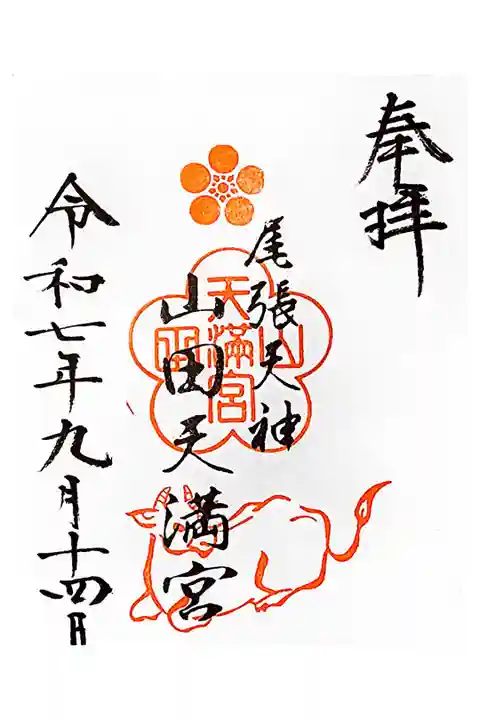 奉拝
尾張天神
山田天満宮
山田天満宮
令和七年九月十四日